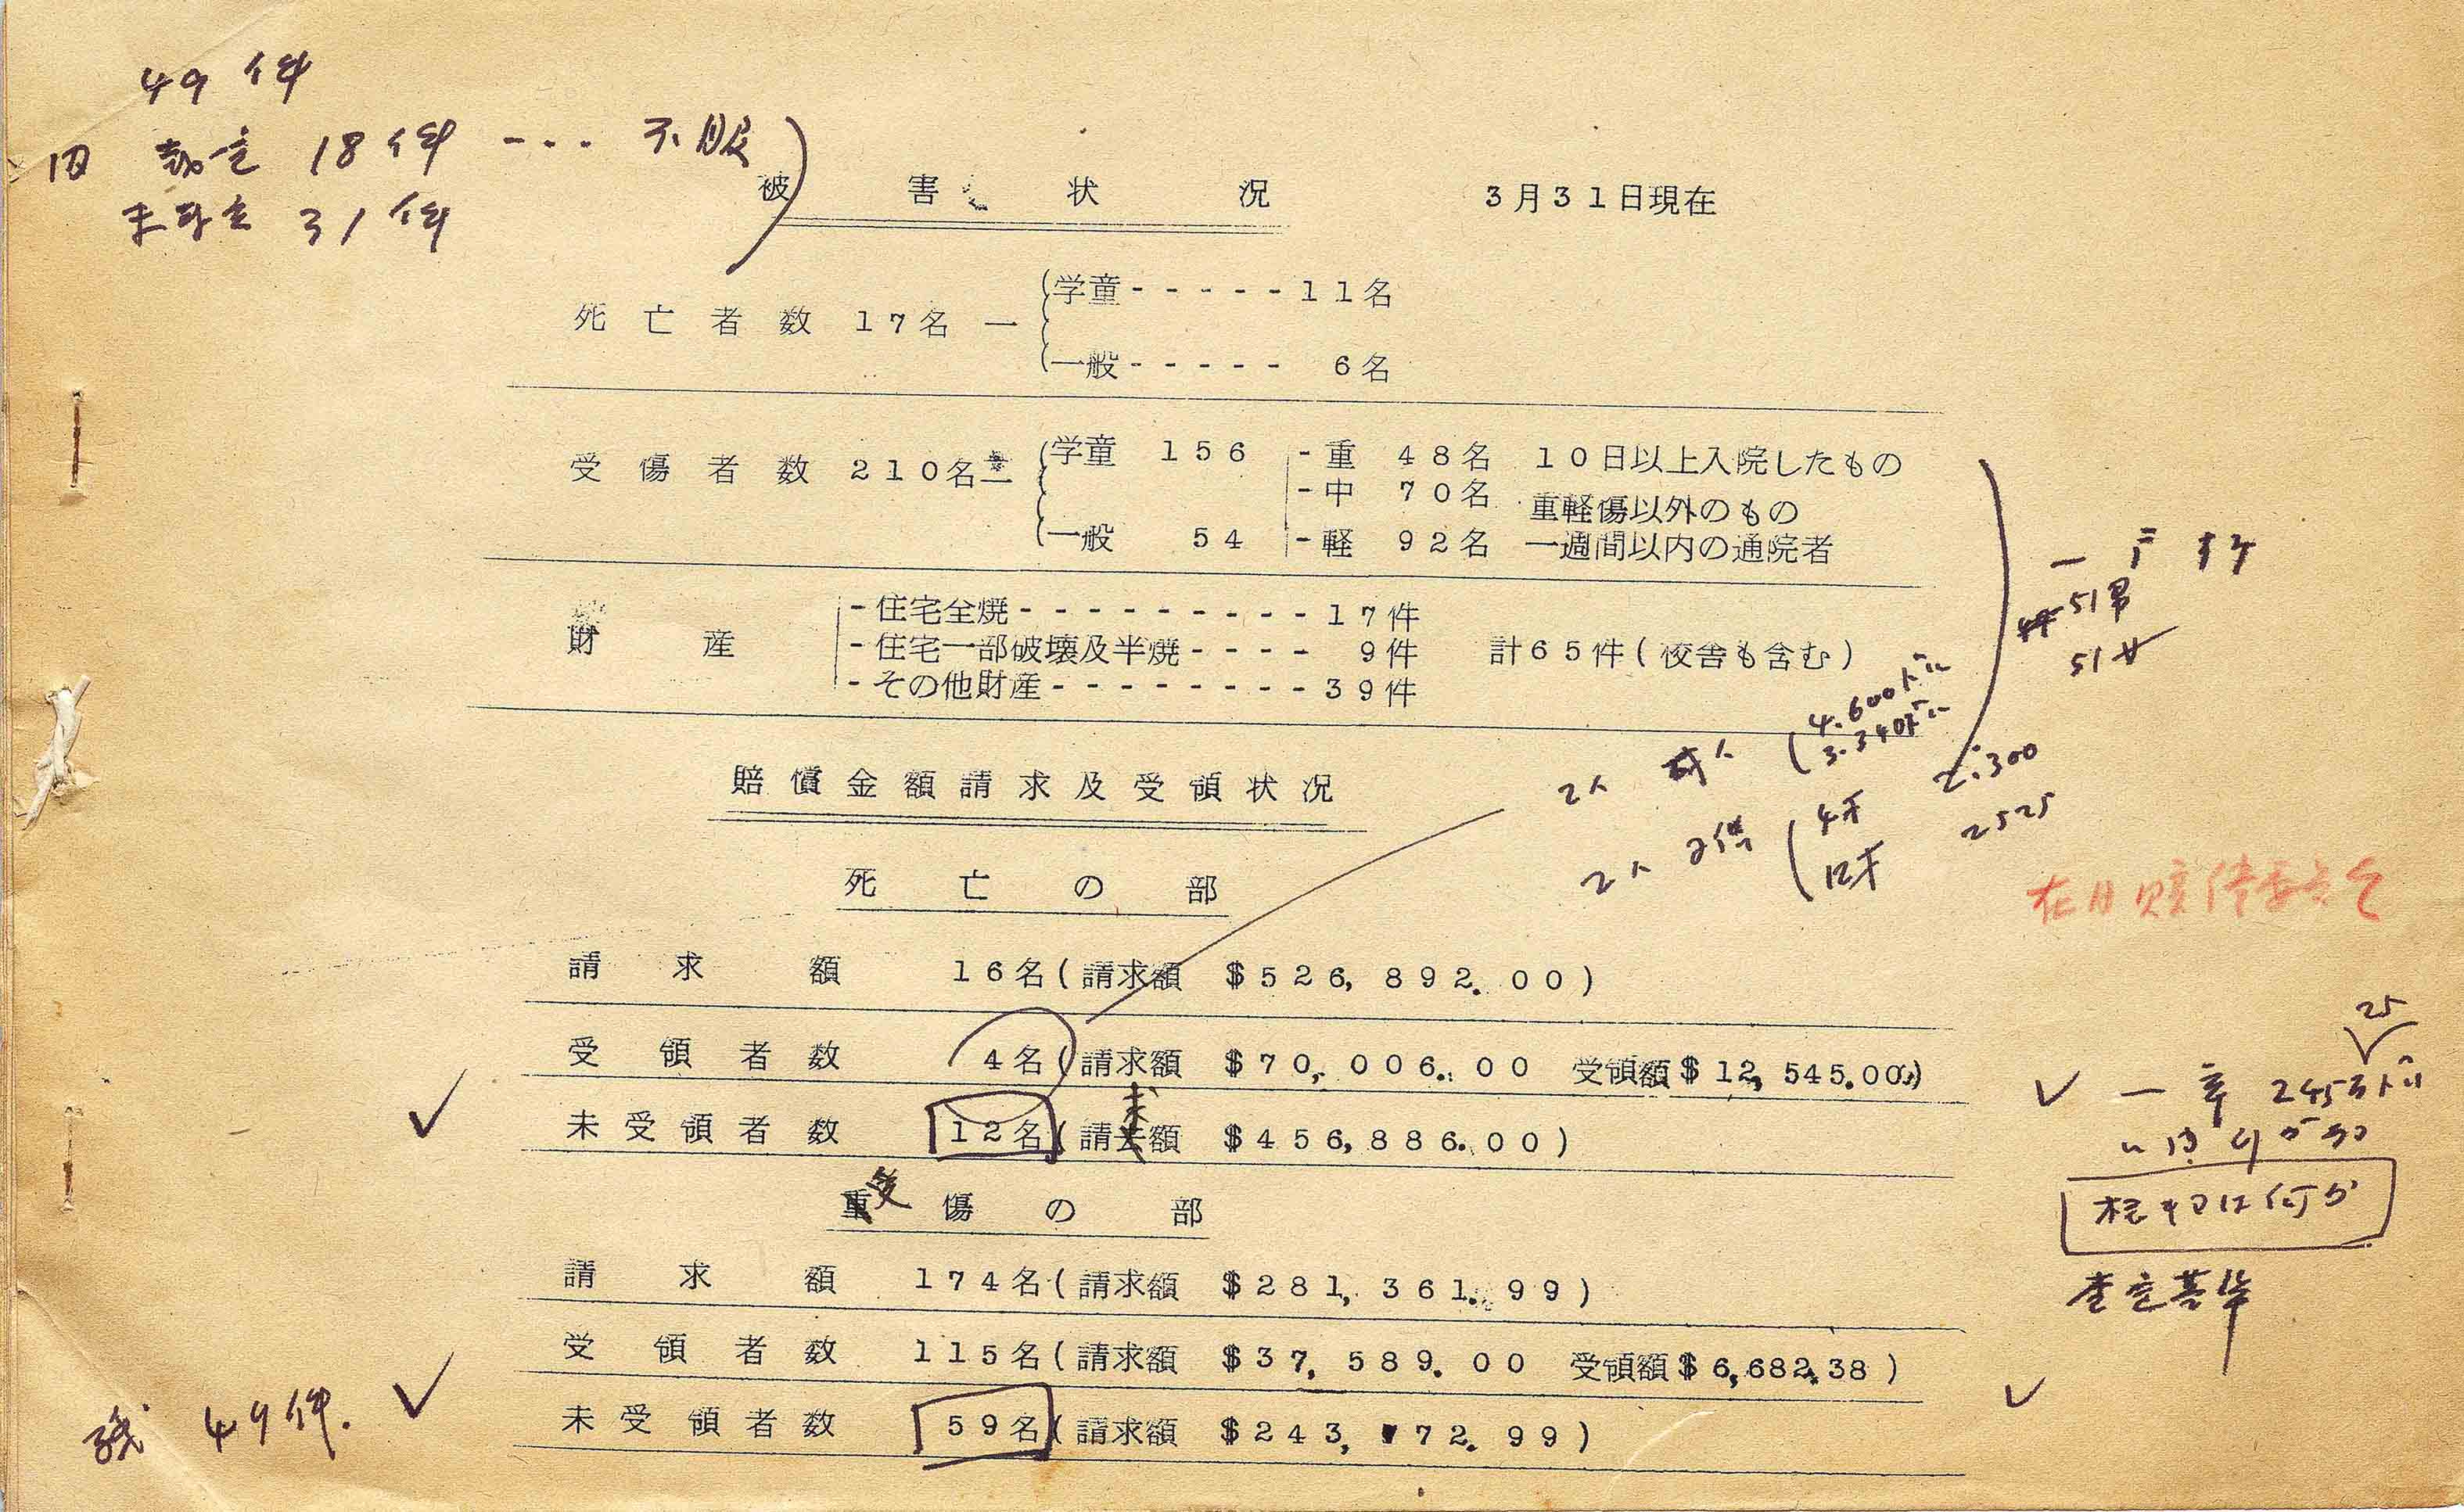 49件
旧 裁定 18件 --- 不服
未裁定 31件
被害状況 3月31日現在
死亡者数 17名 ー
学童-----11名
一般----- 6名
受傷者数 210名
学童 156
一般 54
-重 48名 10日以上入院したもの
-中 70名 重軽傷以外のもの
-軽 92名 一週間以内の通院者
財産
-住宅全焼---------17件
-住宅一部破壊及半焼---- 9件
-その他財産--------39件
計65件(校舎も含む)
51男
51女
賠償金額請求及受領状況
2人 (4.600ドル
3.340ドル
2人 (4才 2.300
12才 2525
死亡の部
請求額 16名(請求額 $526,892.00)
受領者数 4名(請求額 $70,006.00 受領額$12,545.00)
未受領者数 12名(請求額 $456,886.00)
25
一率 2453ドル
根拠は何か
査定基準
受傷の部
請求額 174名(請求額 $281,361.99)
受領者数 115名(請求額 $37,589.00 受領額$6,682.38)
未受領者数 59名(請求額 $243,772.99)
残 49件.